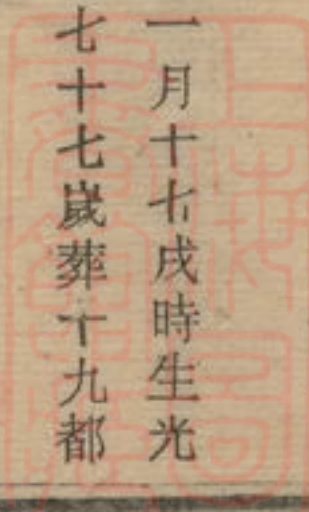 一月十七戌時生光
七十七嵗葬十九都